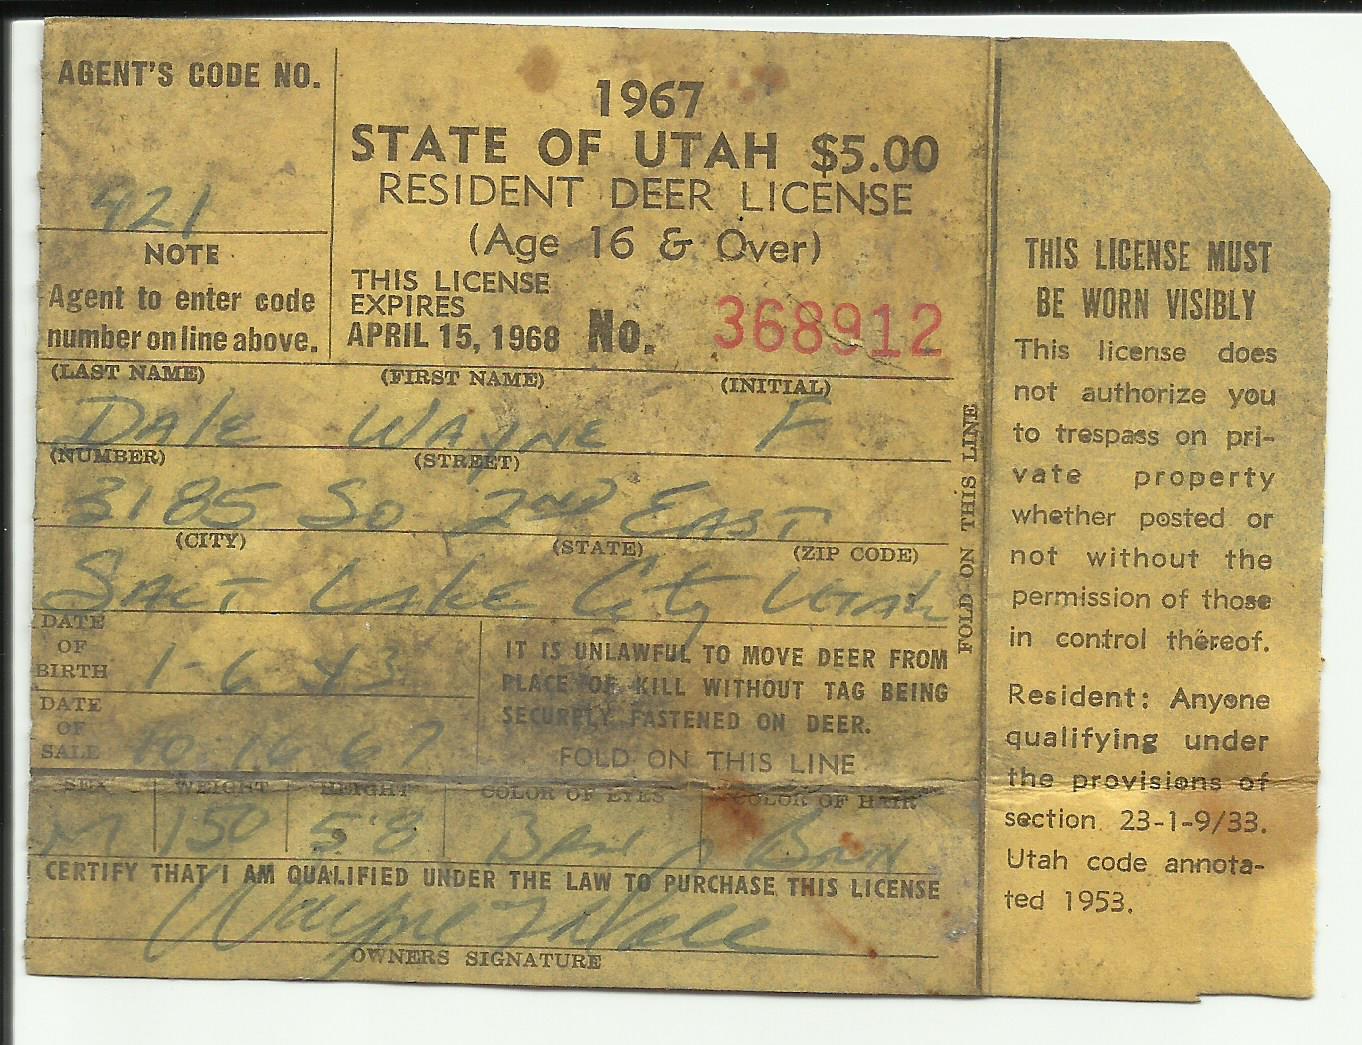 AGENT'S CODE NO.
921
NOTE
Agent to enter code
number on line above.
1967
STATE OF UTAH $5.00
RESIDENT DEER LICENSE
(Age 16 & Over)
THIS LICENSE
EXPIRES
APRIL 15, 1968 No. 368912
(LAST NAME) (FIRST NAME) (INITIAL)
Dale Wayne F
(NUMBER) (STREET)
3185 So 2nd East
(CITY) (STATE) (ZIP CODE)
Salt Lake City Utah
DATE
OF
BIRTH 1-6-43
DATE
OF
SALE 10-16-67
IT IS UNLAWFUL TO MOVE DEER FROM
PLACE OF KILL WITHOUT TAG BEING
SECURELY FASTENED ON DEER.
FOLD ON THIS LINE
SEX WEIGHT HEIGHT COLOR OF EYES COLOR OF HAIR
M 150 5'8
CERTIFY THAT I AM QUALIFIED UNDER THE LAW TO PURCHASE THIS LICENSE
Wayne F Dale
OWNERS SIGNATURE
FOLD ON THIS LINE
THIS LICENSE MUST
BE WORN VISIBLY
This license does
not authorize you
to trespass on pri-
vate property
whether posted or
not without the
permission of those
in control thereof.
Resident: Anyone
qualifying under
the provisions of
section 23-1-9/33.
Utah code annota-
ted 1953.